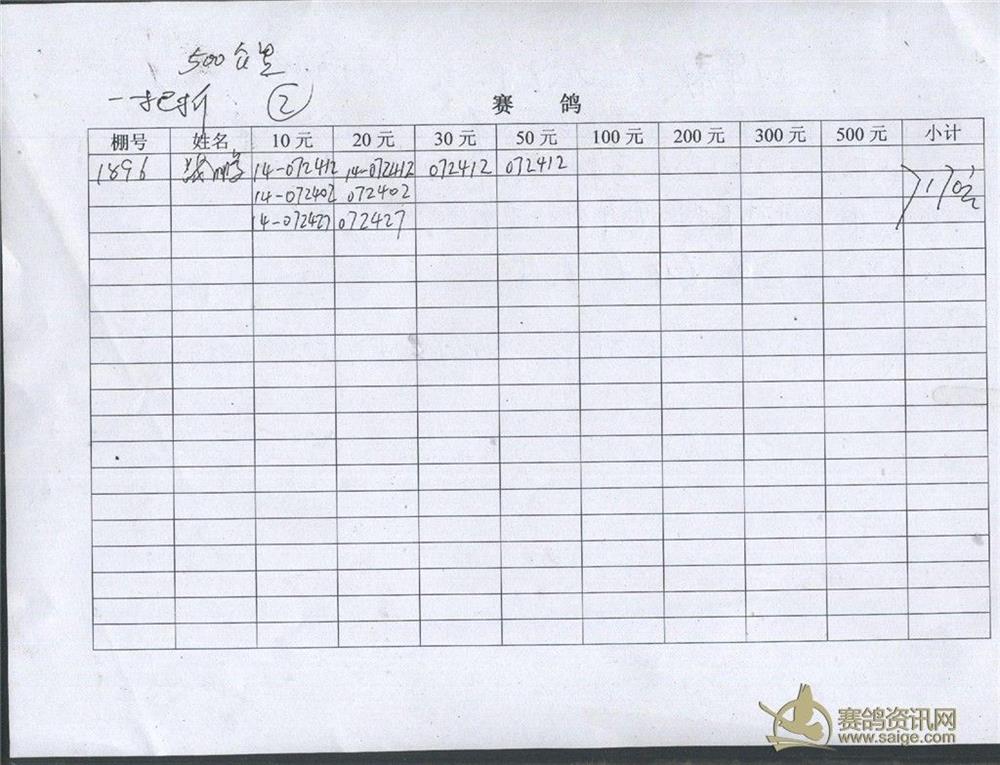 500公里
一把抓 ②
赛 鸽
棚号 姓名 10 元 20 元 30 元 50 元 100 元 200 元 300 元 500 元 小计
1896 14-072412 14-072412 072412 072412 170元
14-072402 072402
14-072427 072427
赛鸽资讯网
www.saige.com